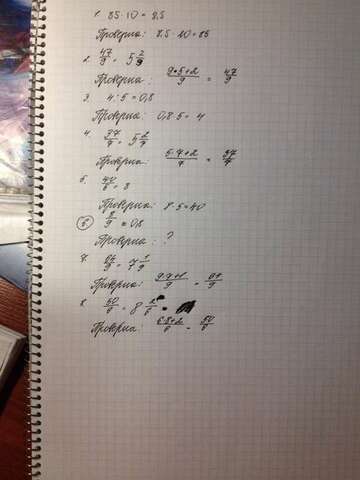 1. 85:10 = 8,5
Проверка: 8,5 · 10 = 85
2. 47/9 = 5 2/9
Проверка: (9·5+2)/9 = 47/9
3. 4:5 = 0,8
Проверка: 0,8·5 = 4
4. 37/7 = 5 2/7
Проверка: (5·7+2)/7 = 37/7
5. 40/5 = 8
Проверка: 8·5=40
6. 8/9 = 0,8
Проверка: ?
7. 64/9 = 7 1/9
Проверка: (9·7+1)/9 = 64/9
8. 50/6 = 8 2/6 =
Проверка: (6·8+2)/6 = 50/6